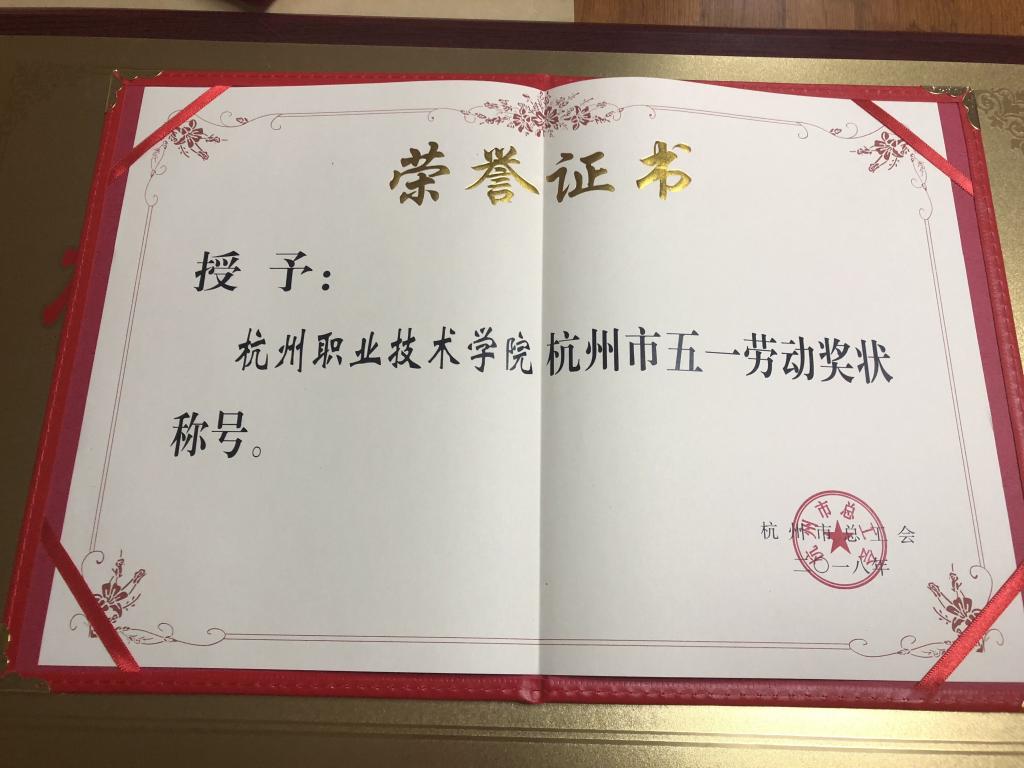 荣誉证书
授予：
杭州职业技术学院杭州市五一劳动奖状
称号。
杭州市总工会
二〇一八年
杭州市总工会